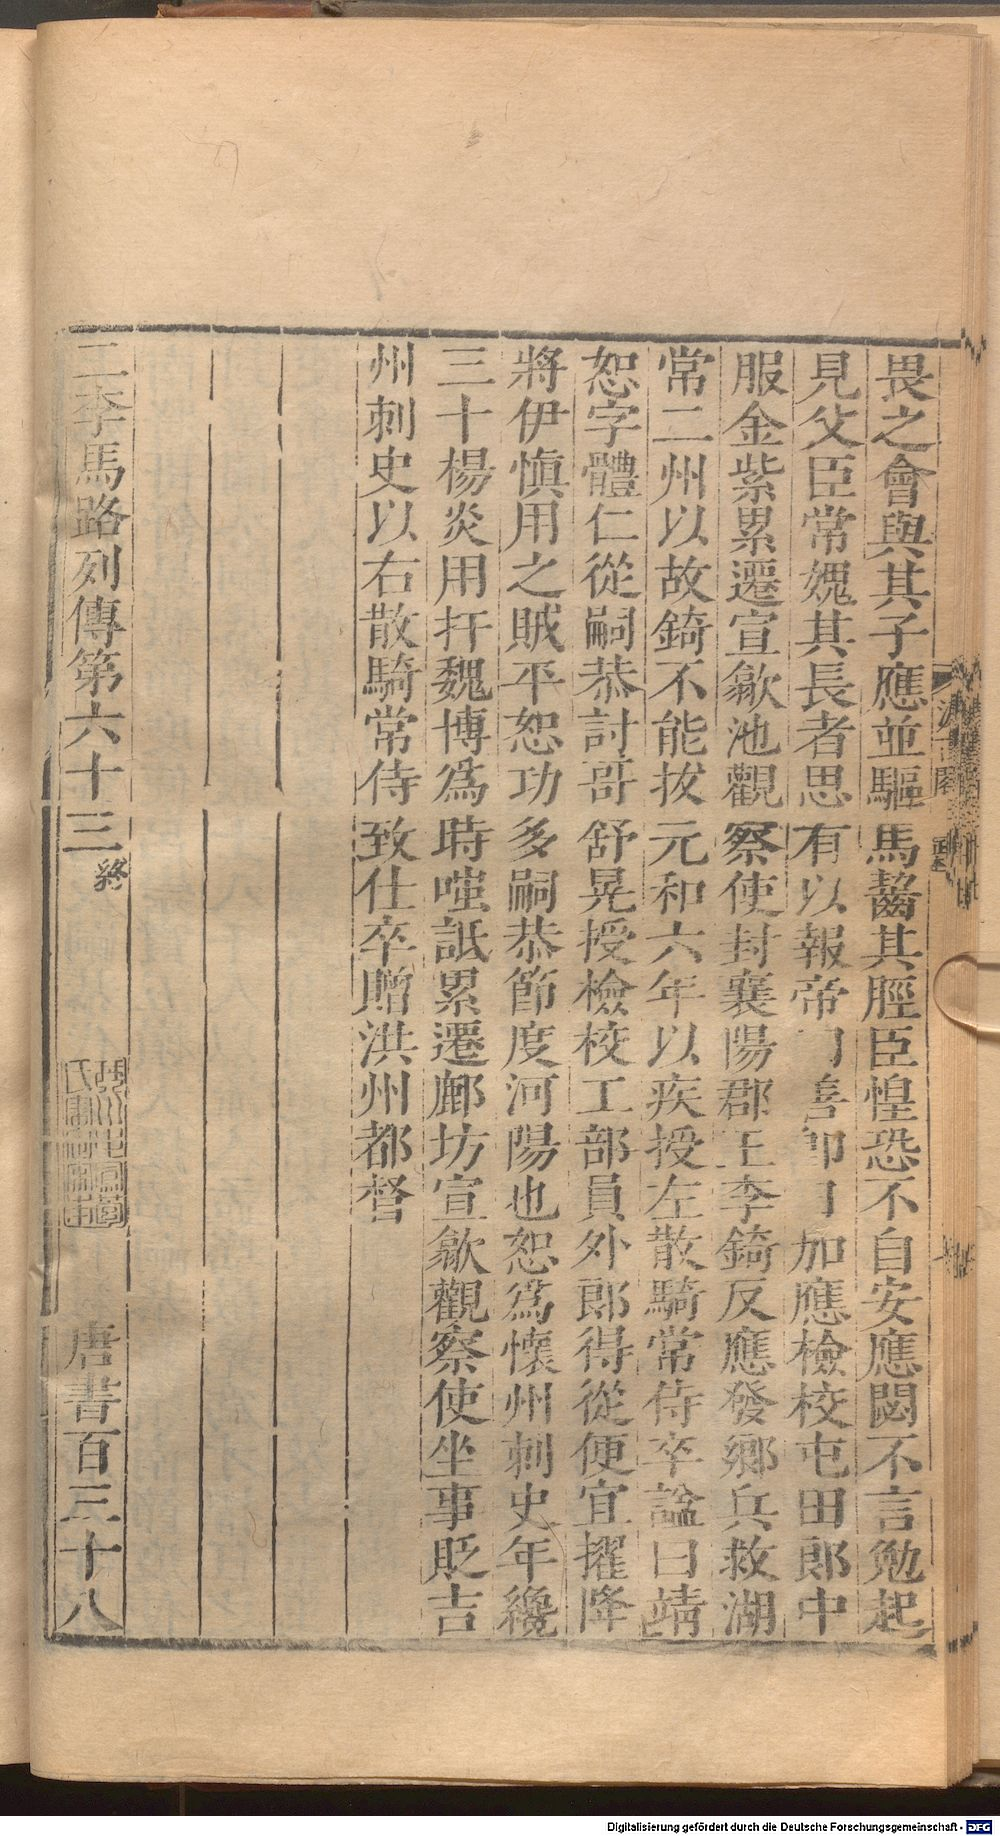 畏之會與其子應並驅馬齧其脛臣惶恐不自安應閟不言勉起
見父臣常媿其長者思有以報帝善即日加應檢校屯田郎中
服金紫累遷宣歙池觀察使封襄陽郡王李錡反應發鄉兵救湖
常二州以故錡不能拔元和六年以疾授左散騎常侍卒謚曰靖
恕字體仁從嗣恭討哥舒晃授檢校工部員外郎得從便宜擢降
將伊慎用之賊平恕功多嗣恭節度河陽也恕爲懷州刺史年纔
三十楊炎用扞魏博爲時嗤詆累遷鄜坊宣歙觀察使坐事貶吉
州刺史以右散騎常侍致仕卒贈洪州都督
二李馬路列傳第六十三 終 唐書百三十八
Digitalisierung gefördert durch die Deutsche Forschungsgemeinschaft - DFG